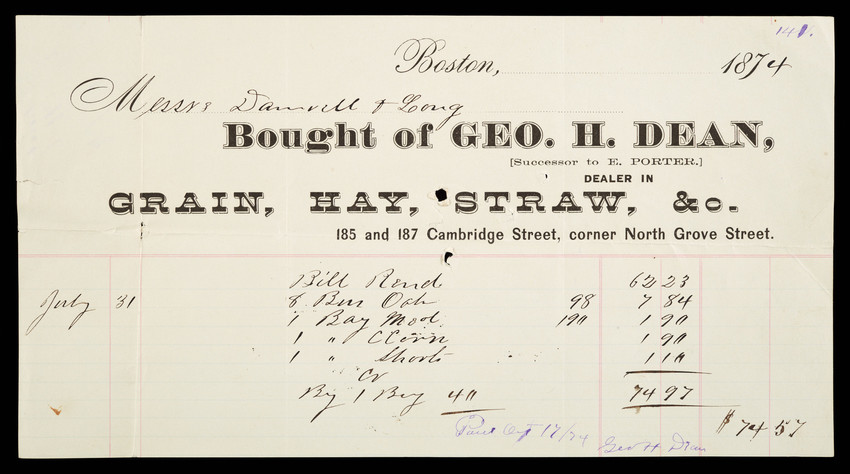 141.
Boston, 1874
Messrs Damrell & Long
Bought of GEO. H. DEAN,
[Successor to E. PORTER.]
DEALER IN
GRAIN, HAY, STRAW, &c.
185 and 187 Cambridge Street, corner North Grove Street.
Bill Rend 62 23
July 31 8 Bus Oats 98 7 84
1 Bag Meal 190 1 90
1 " CCorn 1 90
1 " Shorts 1 10
Cr 
By 1 Bag 40 74 97
$ 74 57
Paid 17/74
Geo H Dean